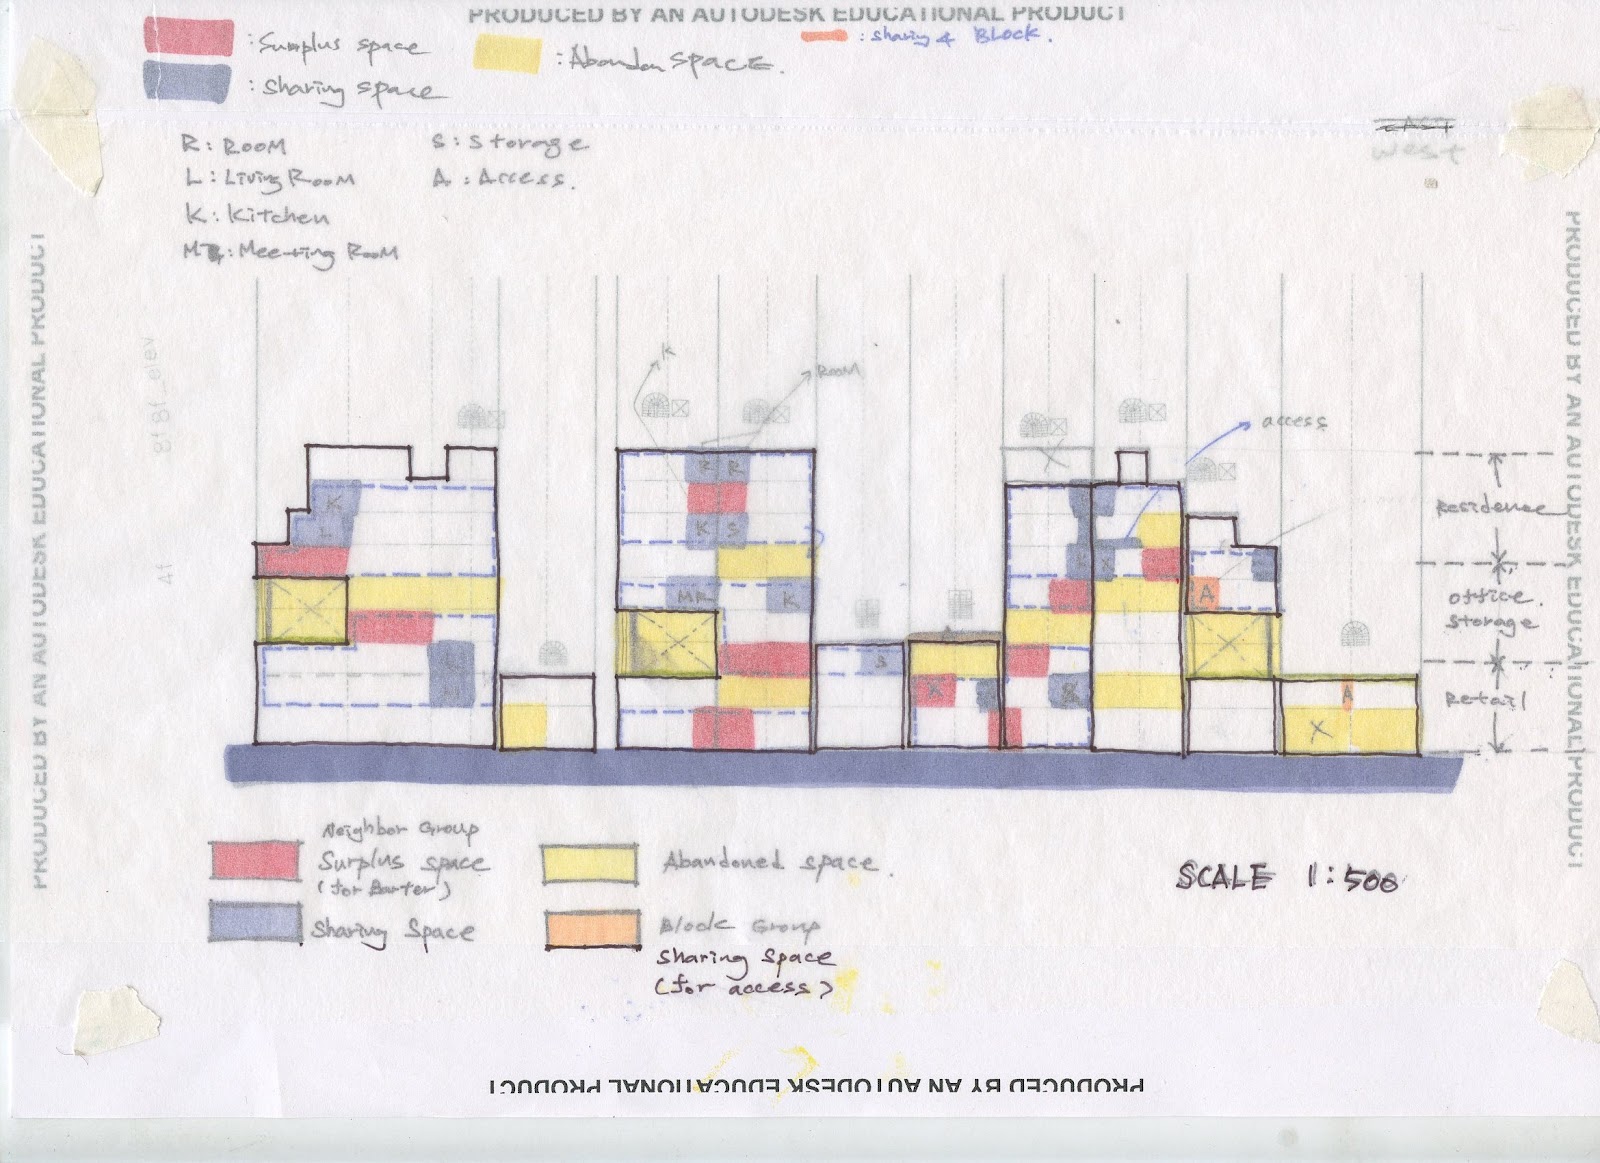 PRODUCED BY AN AUTODESK EDUCATIONAL PRODUCT
: Surplus space
: Abandon SPACE.
: sharing 4 Block.
: sharing space
R : ROOM
S : Storage
L : Living ROOM
A : Access.
K : Kitchen
MR : Meeting ROOM
EAST
west
PRODUCED BY AN AUTODESK EDUCATIONAL PRODUCT
PRODUCED BY AN AUTODESK EDUCATIONAL PRODUCT
8f 8f_elev
4f
K
ROOM
access
R R
K
K S
MR K
A
S
A
X
Residence
office.
storage
Retail
Neighbor Group
Surplus space
(for Barter)
Abandoned space.
SCALE 1:500
Sharing Space
Block Group
sharing space
(for access)
PRODUCED BY AN AUTODESK EDUCATIONAL PRODUCT